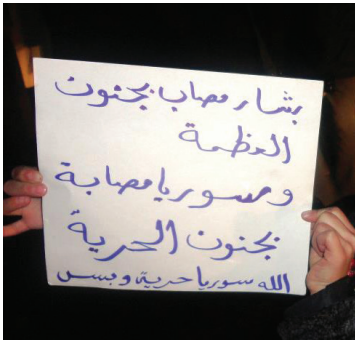 بشار مصاب بجنون
العظمة
وسوريا مصابة
بجنون الحرية
الله سوريا حرية وبس